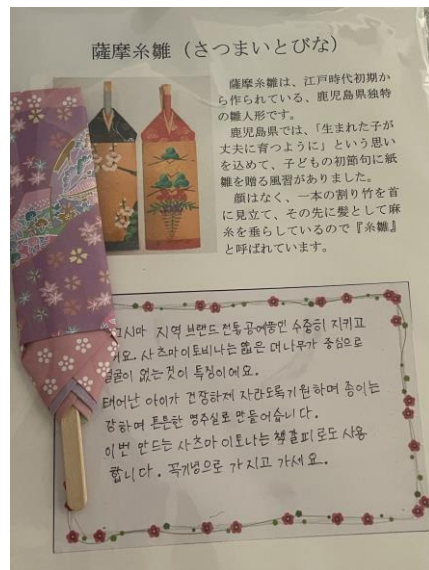 薩摩糸雛（さつまいとびな）
薩摩糸雛は、江戸時代初期か
ら作られている、鹿児島県独特
の雛人形です。
鹿児島県では、「生まれた子が
丈夫に育つように」という思い
を込めて、子どもの初節句に紙
雛を贈る風習がありました。
顔はなく、一本の割り竹を首
に見立て、その先に髪として麻
糸を垂らしているので『糸雛』
と呼ばれています。
지역 브랜드 전통공예품인 수준히 지키고
사츠마이토비나는 얇은 대나무가 중심으로
없는것이 특징이에요.
태어난 아이가 건강하게 자라도록기원하며 종이는
강하며 튼튼한 명주실로 만들어습니다.
이번 만드는 사츠마 이토나는 책갈피로도 사용
합니다. 꼭기념으로 가지고 가세요.